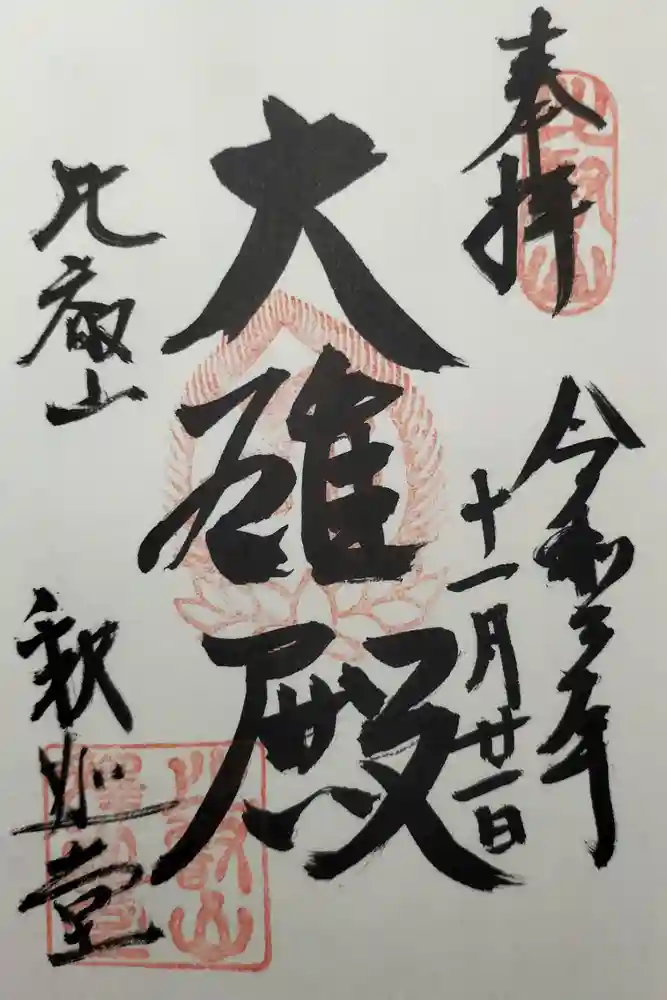 奉拝
令和三年
十一月廿一日
大雄殿
比叡山
釈迦堂